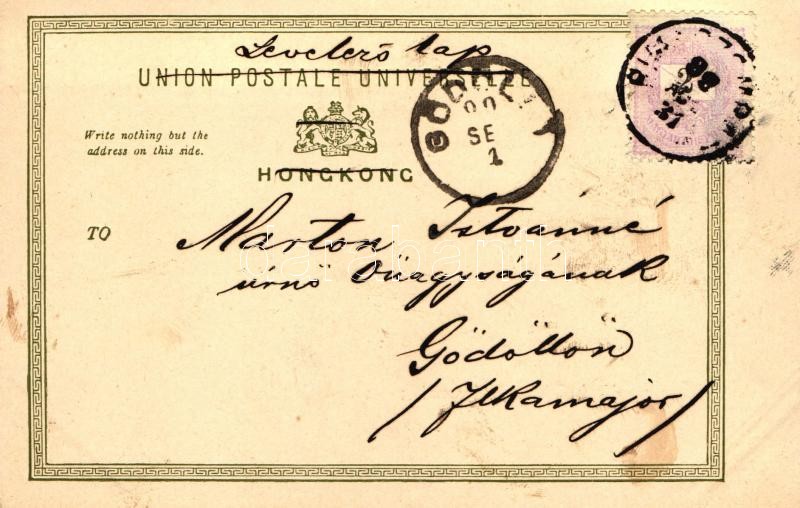 Levelező lap
UNION POSTALE UNIVERSELLE
GÖDÖLLŐ
00
SE
1
Write nothing but the
address on this side.
HONGKONG
TO
Márton Istvánné
úrnő Őnagyságának
Gödöllőn
/ Ilkamajor /
darabanth